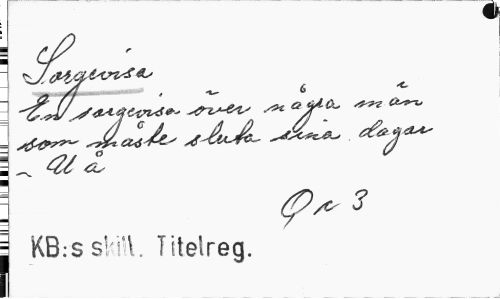 Sorgevisa
En sorgevisa över några män
som måste sluta sina dagar
~ U å
Q r 3
KB:s skill. Titelreg.